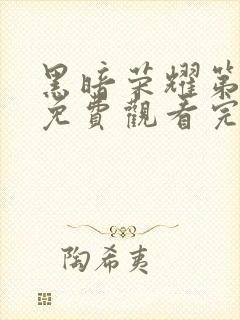 黑暗荣耀第
免費觀看完
陶希夷